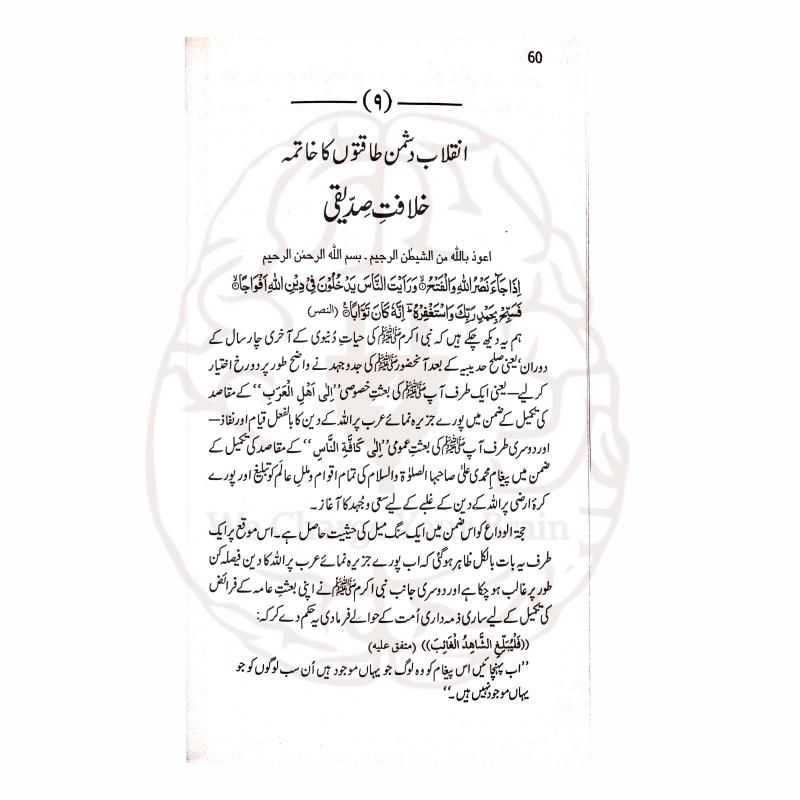 60
(۹)
انقلاب دشمن طاقتوں کا خاتمہ
خلافتِ صدّیقی
اعوذ بالله من الشيطٰن الرجيم ۔ بسم الله الرحمٰن الرحيم
اِذَا جَآءَ نَصْرُ اللهِ وَالْفَتْحُ ۙ وَرَاَيْتَ النَّاسَ يَدْخُلُوْنَ فِيْ دِيْنِ اللهِ اَفْوَاجًا ۙ
فَسَبِّحْ بِحَمْدِ رَبِّكَ وَاسْتَغْفِرْهُ ؕ اِنَّهٗ كَانَ تَوَّابًا ۠ (النصر)
ہم یہ دیکھ چکے ہیں کہ نبی اکرم ﷺ کی حیاتِ دُنیوی کے آخری چار سال کے
دوران' یعنی صلح حدیبیہ کے بعد آنحضور ﷺ کی جدوجہد نے واضح طور پر دو رخ اختیار
کر لیے — یعنی ایک طرف آپ ﷺ کی بعثتِ خصوصی ’’اِلٰی اَهْلِ الْعَرَبِ‘‘ کے مقاصد
کی تکمیل کے ضمن میں پورے جزیرہ نمائے عرب پر اللہ کے دین کا بالفعل قیام اور نفاذ —
اور دوسری طرف آپ ﷺ کی بعثتِ عمومی ’’اِلٰی كَافَّةِ النَّاسِ‘‘ کے مقاصد کی تکمیل کے
ضمن میں پیغامِ محمدی علیٰ صاحبہا الصلوٰۃ والسلام کی تمام اقوام و مللِ عالَم کو تبلیغ اور پورے
کرۂ ارضی پر اللہ کے دین کے غلبے کے لیے سعی و جُہد کا آغاز ۔
حجۃ الوداع کو اس ضمن میں ایک سنگ میل کی حیثیت حاصل ہے۔ اس موقع پر ایک
طرف یہ بات بالکل ظاہر ہو گئی کہ اب پورے جزیرہ نمائے عرب پر اللہ کا دین فیصلہ کن
طور پر غالب ہو چکا ہے اور دوسری جانب نبی اکرم ﷺ نے اپنی بعثتِ عامہ کے فرائض
کی تکمیل کے لیے ساری ذمہ داری اُمت کے حوالے فرما دی یہ حکم دے کر کہ:
((فَلْيُبَلِّغِ الشَّاهِدُ الْغَائِبَ)) (متفق عليه)
’’اب پہنچائیں اس پیغام کو وہ لوگ جو یہاں موجود ہیں اُن سب لوگوں کو جو
یہاں موجود نہیں ہیں۔‘‘